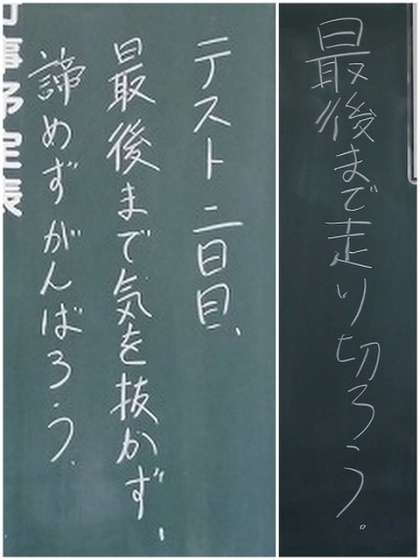 行事予定表
テスト二日目、
最後まで気を抜かず、
諦めずがんばろう。
最後まで走り切ろう。